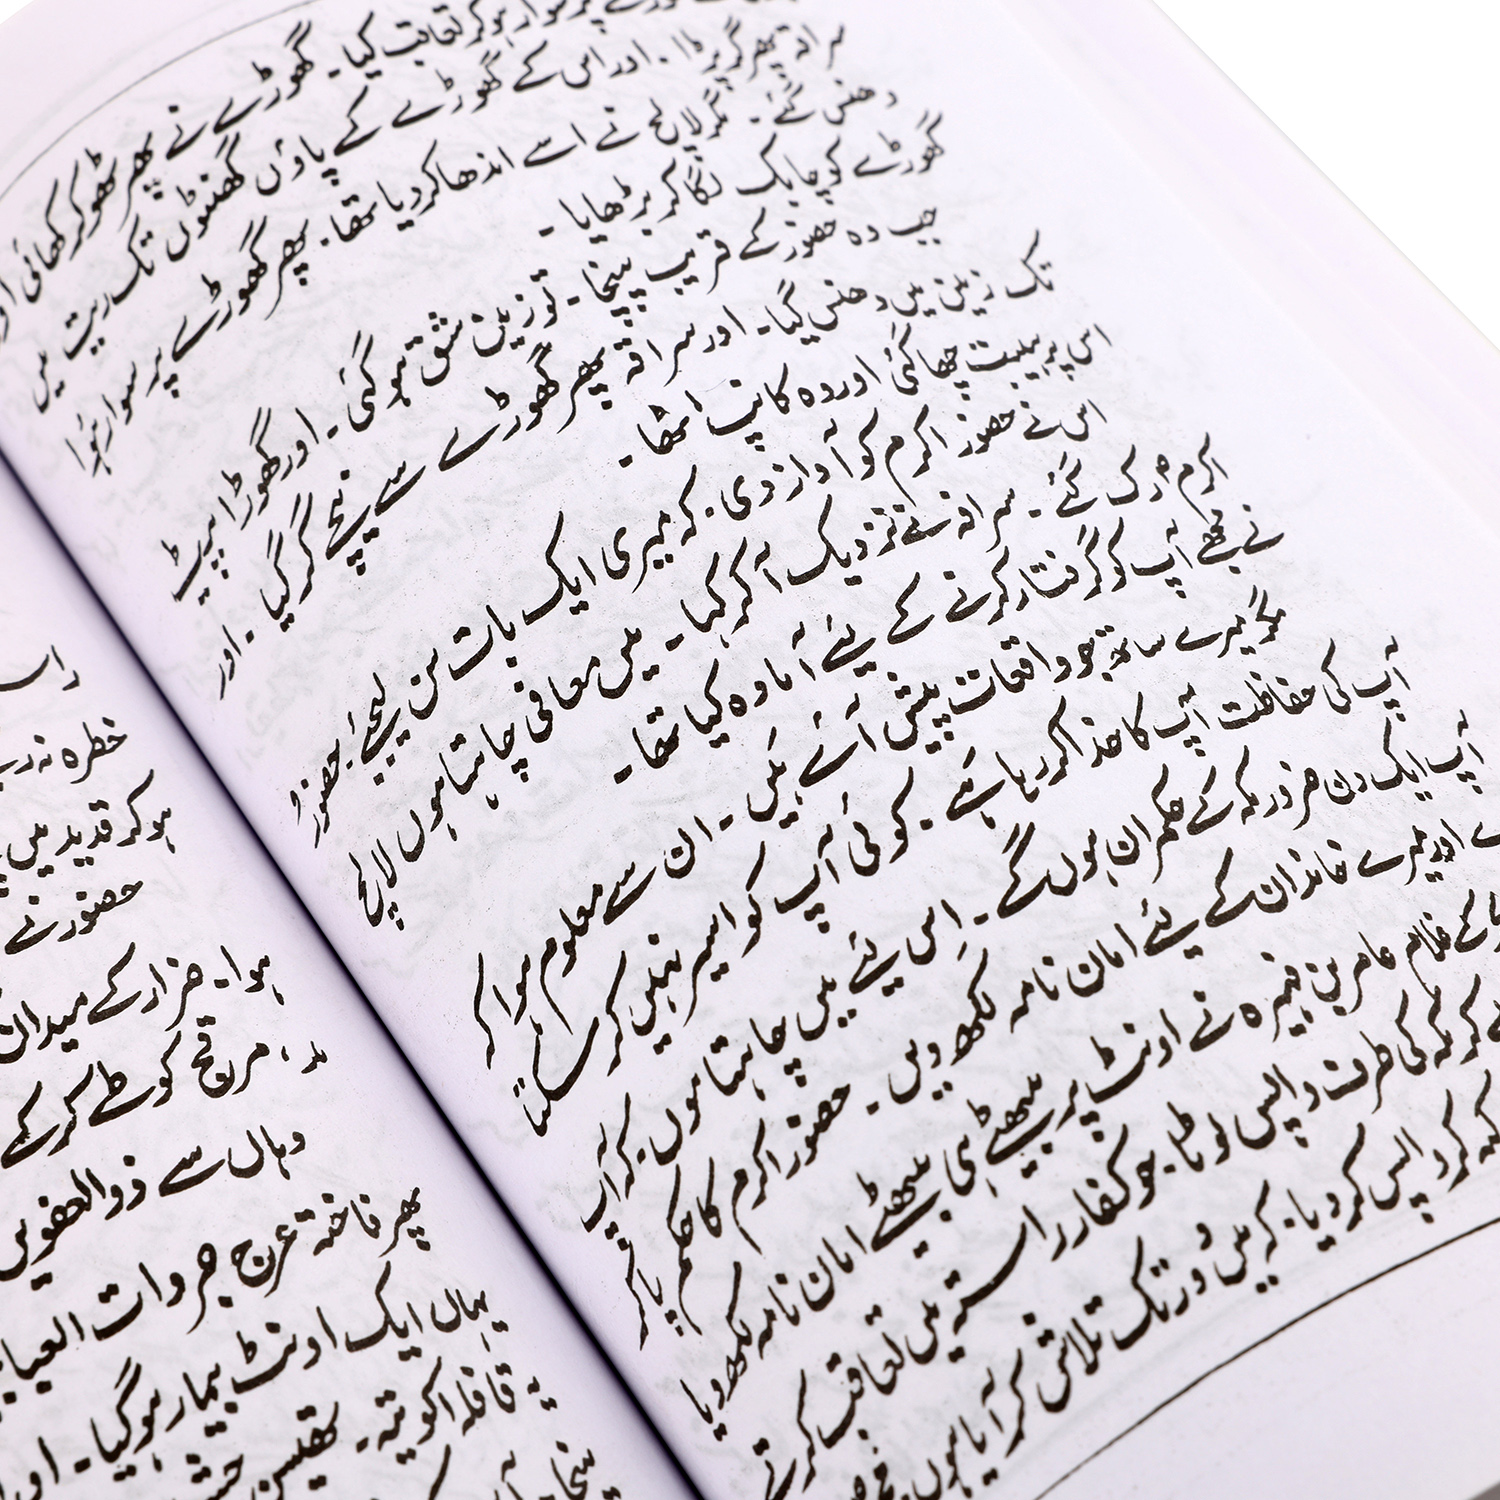 گھوڑے پر سوار ہو کر تعاقب کیا۔ گھوڑے نے پھر ٹھوکر کھائی اور
سراقہ پھر گر پڑا۔ اور اس کے گھوڑے کے پاؤں گھٹنوں تک ریت میں
دھنس گئے۔ مگر لالچ نے اسے اندھا کر دیا تھا۔ پھر گھوڑے پر سوار ہوا
گھوڑے کو چابک لگا کر بڑھایا۔
جب وہ حضور کے قریب پہنچا۔ تو زمین شق ہو گئی۔ اور گھوڑا پیٹ
تک زمین میں دھنس گیا۔ اور سراقہ پھر گھوڑے سے نیچے گر گیا۔ اور
اس پر ہیبت چھا گئی اور وہ کانپ اٹھا۔
اس نے حضور اکرم کو آواز دی۔ کہ میری ایک بات سن لیجئے۔ حضور
اکرم رک گئے۔ سراقہ نے نزدیک آ کر کہا۔ میں معافی چاہتا ہوں لالچ
نے مجھے آپ کو گرفتار کرنے کے لئے آمادہ کیا تھا۔
مگر میرے ساتھ جو واقعات پیش آئے ہیں۔ ان سے معلوم ہوا کہ
آپ کی حفاظت آپ کا خدا کر رہا ہے۔ کوئی آپ کو اسیر نہیں کر سکتا
آپ ایک دن ضرور مکہ کے حکمران ہوں گے۔ اس لئے میں چاہتا ہوں۔ کہ آپ
اور میرے خاندان کے لئے امان نامہ لکھ دیں۔ حضور اکرم کا حکم پا کر
کے غلام عامر بن فہیرہ نے اونٹ پر بیٹھے ہی بیٹھے امان نامہ لکھ دیا
کر مکہ کی طرف واپس لوٹا۔ جو کفار راستہ میں تعاقب کرتے
کہہ کر واپس کر دیا۔ کہ میں دور تک تلاش کر آیا ہوں۔
راستہ
خطرہ نہ رہے
ہو کر قدید میں
حضور نے
ہوا۔ خرار کے میدان
مرنقح کو طے کر کے
وہاں سے ذوالعضوین
پھر فاختہ عرج جروات العبابید
یہاں ایک اونٹ بیمار ہو گیا۔ اور
یہ قافلہ